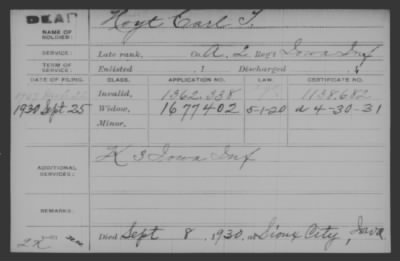 DEAD
NAME OF SOLDIER: Hoyt Carl T.
SERVICE: Late rank, Co. A, 2 Reg't Iowa Inf
TERM OF SERVICE: Enlisted , 1 Discharged , 1
DATE OF FILING. CLASS. APPLICATION NO. LAW. CERTIFICATE NO.
Invalid, 1362.338 1138.682
1930 Sept 25 Widow, 1677402 5-1-20 d 4-30-31
Minor,
ADDITIONAL SERVICES: K 3 Iowa Inf
REMARKS:
Died Sept 8, 1930, at Sioux City, Iowa